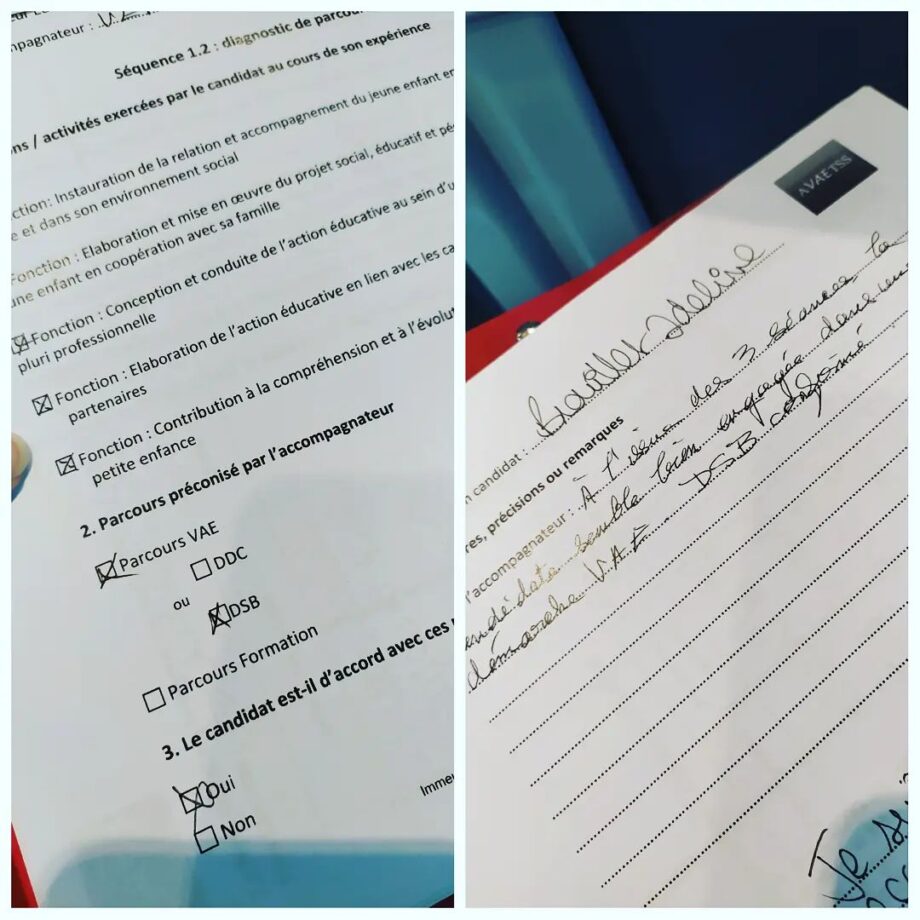 mpagnateur :
Séquence 1.2 : diagnostic de parcou
ns / activités exercées par le candidat au cours de son expérience
ction: Instauration de la relation et accompagnement du jeune enfant en
e et dans son environnement social
Fonction : Elaboration et mise en œuvre du projet social, éducatif et pé
une enfant en coopération avec sa famille
Fonction : Conception et conduite de l'action éducative au sein d'u
pluri professionnelle
Fonction : Elaboration de l'action éducative en lien avec les ca
partenaires
Fonction : Contribution à la compréhension et à l'évolut
petite enfance
2. Parcours préconisé par l'accompagnateur
Parcours VAE
DDC
ou
DSB
Parcours Formation
3. Le candidat est-il d'accord avec ces
Oui
Non
Imme
AVAETSS
n candidat : Adeline
res, précisions ou remarques
l'accompagnateur : À l'issue des 3 séances la
andidate semble bien engagée dans une
démarche VAE DSB confirmé
Je su